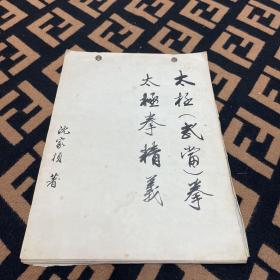 太极(武當)拳
太極拳精義
沈家俊 著